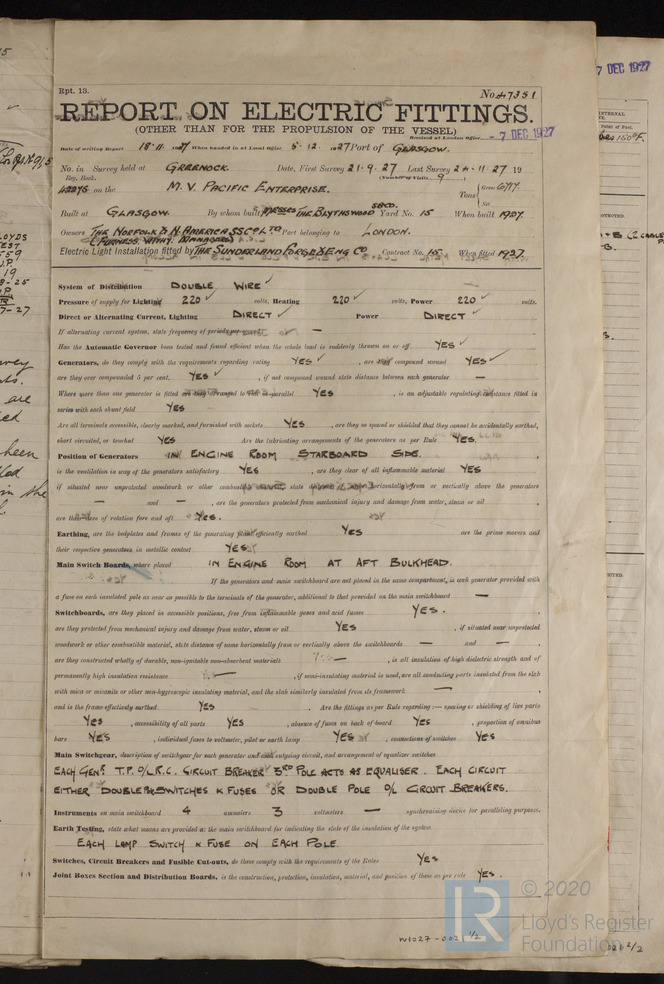 Rpt. 13.
No. 47351
REPORT ON ELECTRIC FITTINGS.
(OTHER THAN FOR THE PROPULSION OF THE VESSEL)
Received at London Office - 7 DEC 1927
Date of writing Report 18·11· 1927 When handed in at Local Office 5·12· 1927 Port of GLASGOW.
No. in Survey held at GREENOCK. Date, First Survey 21·9·27 Last Survey 24·11·27 19
Reg. Book. (Number of Visits 9)
on the M.V. PACIFIC ENTERPRISE. Tons { Gross 6717. Net
Built at GLASGOW. By whom built MESSRS THE BLYTHSWOOD SBCO. Yard No. 15 When built 1927.
Owners THE NORFOLK & N. AMERICA SSCO LTD Port belonging to LONDON.
(FURNESS, WITHY. MANAGERS)
Electric Light Installation fitted by THE SUNDERLAND FORGE & ENG CO. Contract No. 15 When fitted 1927.
System of Distribution DOUBLE WIRE
Pressure of supply for Lighting 220 volts, Heating 220 volts, Power 220 volts.
Direct or Alternating Current, Lighting DIRECT Power DIRECT
If alternating current system, state frequency of periods per second —
Has the Automatic Governor been tested and found efficient when the whole load is suddenly thrown on or off YES
Generators, do they comply with the requirements regarding rating YES, are they compound wound YES
are they over compounded 5 per cent. YES, if not compound wound state distance between each generator —
Where more than one generator is fitted are they arranged to run in parallel YES, is an adjustable regulating resistance fitted in
series with each shunt field YES
Are all terminals accessible, clearly marked, and furnished with sockets YES, are they so spaced or shielded that they cannot be accidentally earthed,
short circuited, or touched YES Are the lubricating arrangements of the generators as per Rule YES.
Position of Generators IN ENGINE ROOM STARBOARD SIDE.
is the ventilation in way of the generators satisfactory YES, are they clear of all inflammable material YES
if situated near unprotected woodwork or other combustible material, state distance of same horizontally from or vertically above the generators
— and —, are the generators protected from mechanical injury and damage from water, steam or oil
are their axes of rotation fore and aft YES.
Earthing, are the bedplates and frames of the generating plant efficiently earthed YES are the prime movers and
their respective generators in metallic contact YES
Main Switch Boards, where placed IN ENGINE ROOM AT AFT BULKHEAD.
If the generators and main switchboard are not placed in the same compartment, is each generator provided with
a fuse on each insulated pole as near as possible to the terminals of the generator, additional to that provided on the main switchboard —
Switchboards, are they placed in accessible positions, free from inflammable gases and acid fumes YES.,
are they protected from mechanical injury and damage from water, steam or oil YES, if situated near unprotected
woodwork or other combustible material, state distance of same horizontally from or vertically above the switchboards — and —,
are they constructed wholly of durable, non-ignitable non-absorbent materials, is all insulation of high dielectric strength and of
permanently high insulation resistance, if semi-insulating material is used, are all conducting parts insulated from the slab
with mica or micanite or other non-hygroscopic insulating material, and the slab similarly insulated from its framework —,
and is the frame effectively earthed YES. Are the fittings as per Rule regarding:— spacing or shielding of live parts
YES, accessibility of all parts YES, absence of fuses on back of board YES, proportion of omnibus
bars YES, individual fuses to voltmeter, pilot or earth lamp YES, connections of switches YES
Main Switchgear, description of switchgear for each generator and each outgoing circuit, and arrangement of equaliser switches
EACH GENR. T.P. O/L.R.C. CIRCUIT BREAKER 3RD POLE ACTS AS EQUALISER. EACH CIRCUIT
EITHER DOUBLE P. SWITCHES & FUSES OR DOUBLE POLE O/L CIRCUIT BREAKERS.
Instruments on main switchboard 4 ammeters 3 voltmeters — synchronising device for paralleling purposes.
Earth Testing, state what means are provided at the main switchboard for indicating the state of the insulation of the system
EACH LAMP SWITCH & FUSE ON EACH POLE.
Switches, Circuit Breakers and Fusible Cut-outs, do these comply with the requirements of the Rules YES
Joint Boxes Section and Distribution Boards, is the construction, protection, insulation, material, and position of these as per rule YES.
© 2020
Lloyd's Register
Foundation
W1027-0021 1/2